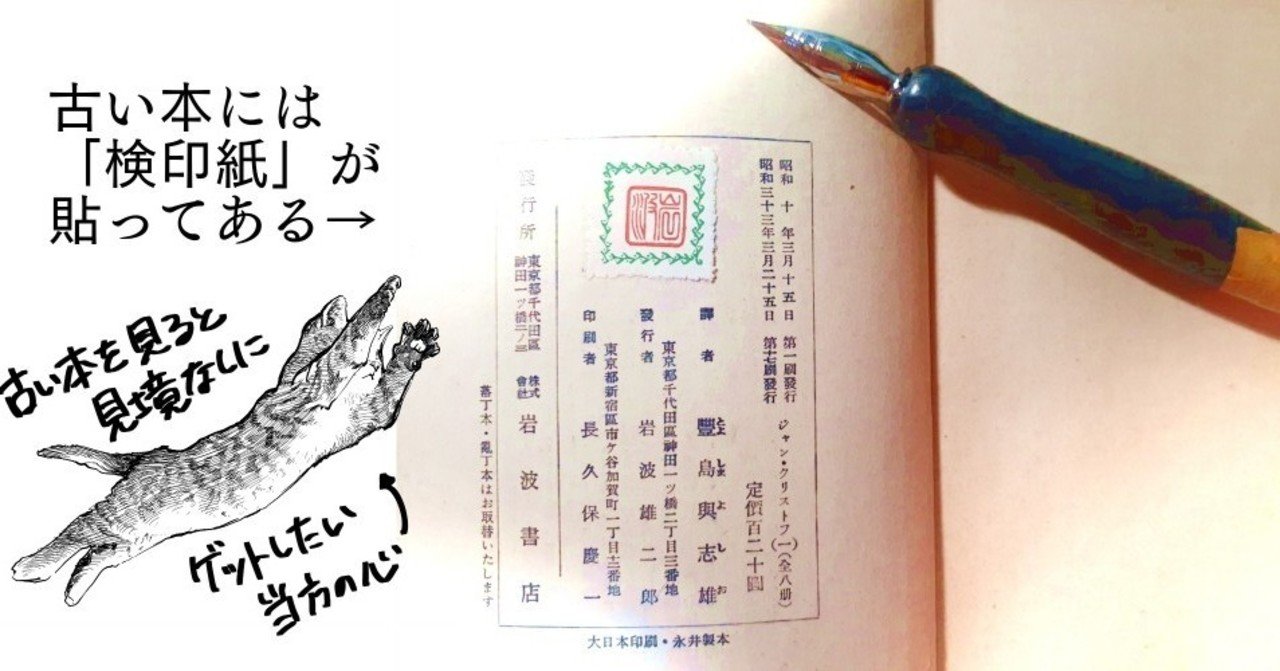 古い本には
「検印紙」が
貼ってある→
古い本を見ると
見境なしに
ゲットしたい
当方の心
昭和十年三月十五日 第一刷發行
昭和三十三年三月二十五日 第十七刷發行
ジャン・クリストフ(一)(全八册)
定價百二十圓
譯者 豐島與志雄
とよしまよしお
東京都千代田區神田一ッ橋二丁目三番地
發行者 岩波雄二郎
東京都新宿區市ケ谷加賀町一丁目十二番地
印刷者 長久保慶一
發行所 東京都千代田區神田一ッ橋二ノ三 株式會社 岩波書店
落丁本・亂丁本はお取替いたします
大日本印刷・永井製本
岩波